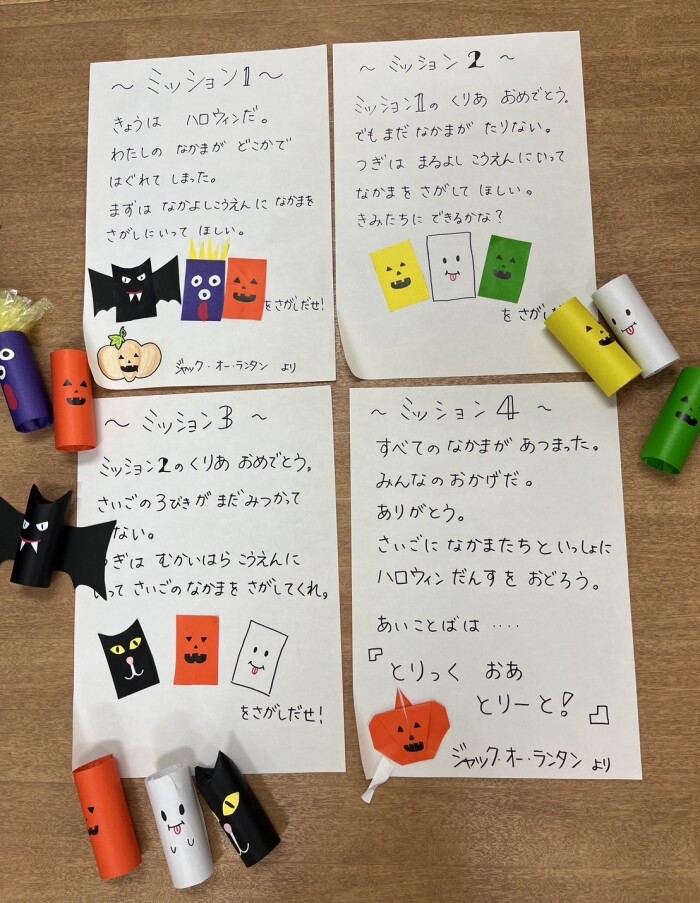 ～ ミッション1 ～
きょうは ハロウィンだ。
わたしの なかまが どこかで
はぐれて しまった。
まずは なかよしこうえんに なかまを
さがしにいって ほしい。
をさがしだせ!
ジャック・オー・ランタン より
～ ミッション 2 ～
ミッション1の くりあ おめでとう。
でも まだ なかまが たりない。
つぎは まるよし こうえんにいって
なかまを さがして ほしい。
きみたちに できるかな?
をさがし
～ ミッション3 ～
ミッション2のくりあ おめでとう。
さいごの3びきが まだみつかって
ない。
ぎは むかいはら こうえんに
いって さいごのなかまを さがしてくれ。
をさがしだせ!
～ ミッション4 ～
すべての なかまが あつまった。
みんなのおかげだ。
ありがとう。
さいごに なかまたちと いっしょに
ハロウィン だんすを おどろう。
あいことばは ‥‥
「とりっく おあ
とりーと!」
ジャック・オー・ランタン より